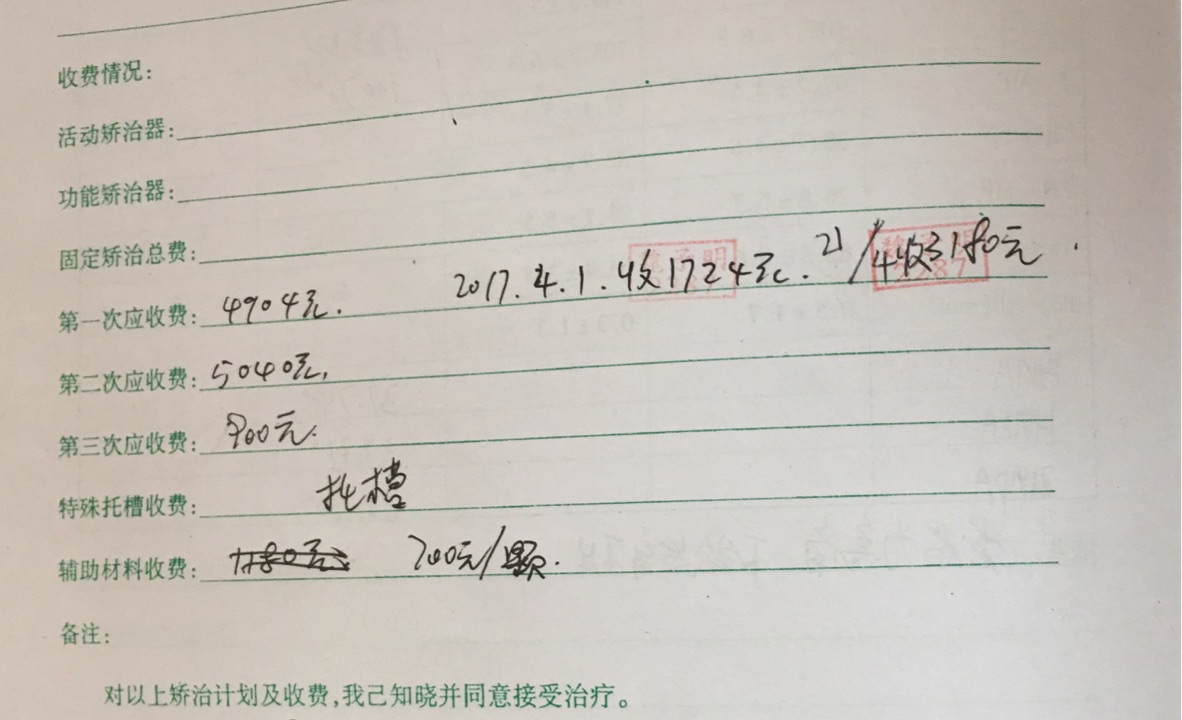 收费情况:
活动矫治器:
功能矫治器:
固定矫治总费:
第一次应收费: 4904元. 2017.4.1.收1724元. 21/4收3180元
第二次应收费: 5040元,
第三次应收费: 900元.
特殊托槽收费: 托槽
辅助材料收费: 1180元 200元/颗.
备注:
对以上矫治计划及收费,我已知晓并同意接受治疗。